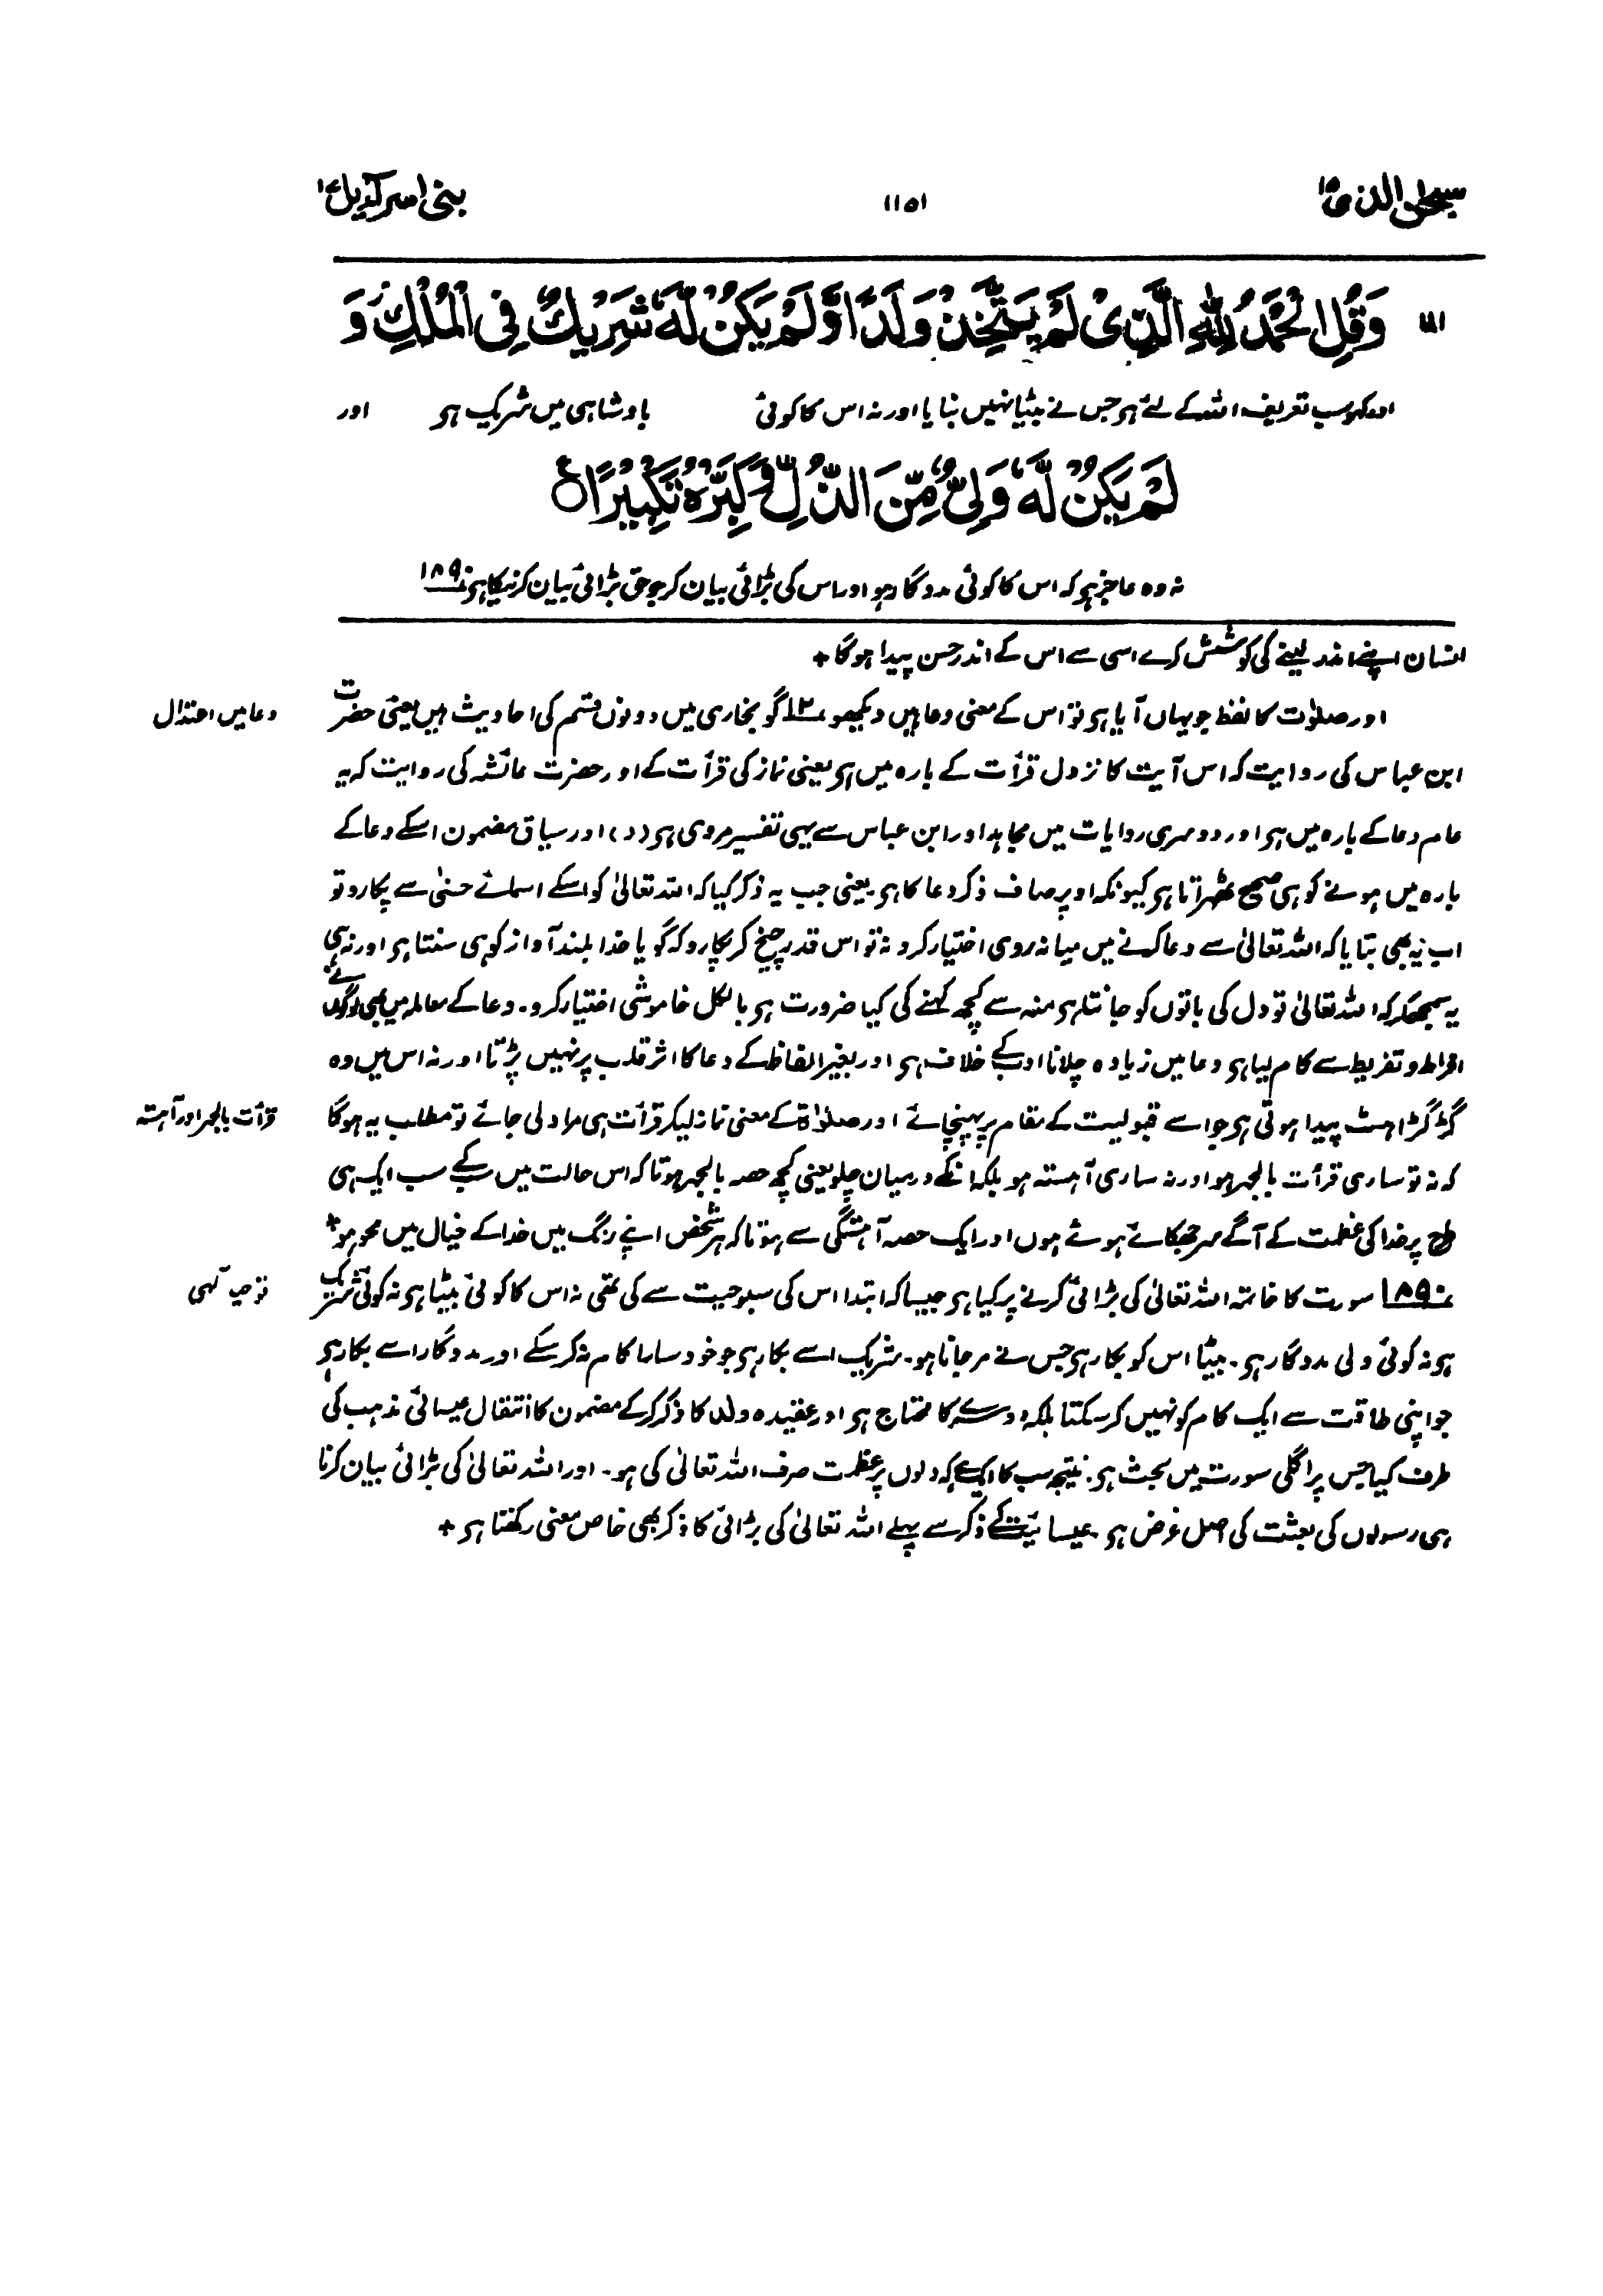 سبحٰن الذی ۱۵
۱۱۵۱
بنی اسرآءیل ۱۷
۱۱۱ وَقُلِ الْحَمْدُ لِلّٰهِ الَّذِیْ لَمْ یَتَّخِذْ وَلَدًا وَّلَمْ یَكُنْ لَّهٗ شَرِیْكٌ فِی الْمُلْكِ وَ
اور کہو سب تعریف اللہ کے لئے ہو جس نے بیٹا نہیں بنایا اور نہ اس کا کوئی بادشاہی میں شریک ہو اور
لَمْ یَكُنْ لَّهٗ وَلِیٌّ مِّنَ الذُّلِّ وَكَبِّرْهُ تَكْبِیْرًا ع
نہ وہ عاجز ہو کہ اس کا کوئی مددگار ہو اور اس کی بڑائی بیان کر جو حق بڑائی بیان کرنیکا ہو نمبر ۱۸۹۰
انسان اپنے اندر لینے کی کوشش کرے اسی سے اس کے اندر حسن پیدا ہوگا +
دعا میں اعتدال
اور صلوٰت کا لفظ جو یہاں آیا ہو تو اس کے معنی دعا ہیں دیکھو نمبر ۱۲ گو بخاری میں دونوں قسم کی احادیث ہیں یعنی حضرت
ابن عباس کی روایت کہ اس آیت کا نزول قرأت کے بارہ میں ہو یعنی نماز کی قرأت کے اور حضرت عائشہ کی روایت کہ یہ
عام دعا کے بارہ میں ہو اور دوسری روایات میں مجاہد اور ابن عباس سے یہی تفسیر مروی ہو (د) اور سیاق مضمون اسکے دعا کے
بارہ میں ہونے کو ہی صحیح ٹھہراتا ہو کیونکہ اوپر صاف ذکر دعا کا ہو یعنی جب یہ ذکر کیا کہ اللہ تعالیٰ کو اسکے اسمائے حسنیٰ سے پکارو تو
اب یہ بھی بتایا کہ اللہ تعالیٰ سے دعا کرنے میں میانہ روی اختیار کرو نہ تو اس قدر چیخ کر پکارو کہ گویا خدا بلند آواز کو ہی سنتا ہو اور نہ ہی
یہ سمجھکر کہ اللہ تعالیٰ تو دل کی باتوں کو جانتا ہو منہ سے کچھ کہنے کی کیا ضرورت ہو بالکل خاموشی اختیار کرو۔ دعا کے معاملہ میں بھی لوگوں نے
افراط و تفریط سے کام لیا ہو دعا میں زیادہ چلانا ادب کے خلاف ہو اور بغیر الفاظ کے دعا کا اثر قلب پر نہیں پڑتا اور نہ اس میں وہ
قرأت بالجہر اور آہستہ
گڑگڑاہٹ پیدا ہوتی ہو جو اسے قبولیت کے مقام پر پہنچائے اور صلوٰۃ کے معنی نماز لیکر قرأت ہی مراد لی جائے تو مطلب یہ ہوگا
کہ نہ تو ساری قرأت بالجہر ہو اور نہ ساری آہستہ ہو بلکہ انکے درمیان چلو یعنی کچھ حصہ بالجہر ہو تاکہ اس حالت میں سب کے سب ایک ہی
طرح پر خدا کی عظمت کے آگے سر جھکائے ہوئے ہوں اور ایک حصہ آہستگی سے ہو تاکہ ہر شخص اپنے رنگ میں خدا کے خیال میں محو ہو +
توحید الٰہی
نمبر ۱۸۹۰ سورت کا خاتمہ اللہ تعالیٰ کی بڑائی کرنے پر کیا ہو جیسا کہ ابتدا اس کی سبوحیت سے کی تھی نہ اس کا کوئی بیٹا ہو نہ کوئی شریک
ہو نہ کوئی ولی مددگار ہو۔ بیٹا اس کو بکار ہو جس نے مر جانا ہو۔ شریک اسے بکار ہو جو خود سارا کام نہ کر سکے اور مددگار اسے بکار ہو
جو اپنی طاقت سے ایک کام کو نہیں کر سکتا بلکہ دوسرے کا محتاج ہو اور عقیدہ ولد کا ذکر کرکے مضمون کا انتقال عیسائی مذہب کی
طرف کیا جس پر اگلی سورت میں بحث ہو۔ نتیجہ سب کا ایک ہے کہ دلوں پر عظمت صرف اللہ تعالیٰ کی ہو۔ اور اللہ تعالیٰ کی بڑائی بیان کرنا
ہی رسولوں کی بعثت کی اصل غرض ہو عیسائیت کے ذکر سے پہلے اللہ تعالیٰ کی بڑائی کا ذکر بھی خاص معنی رکھتا ہو +